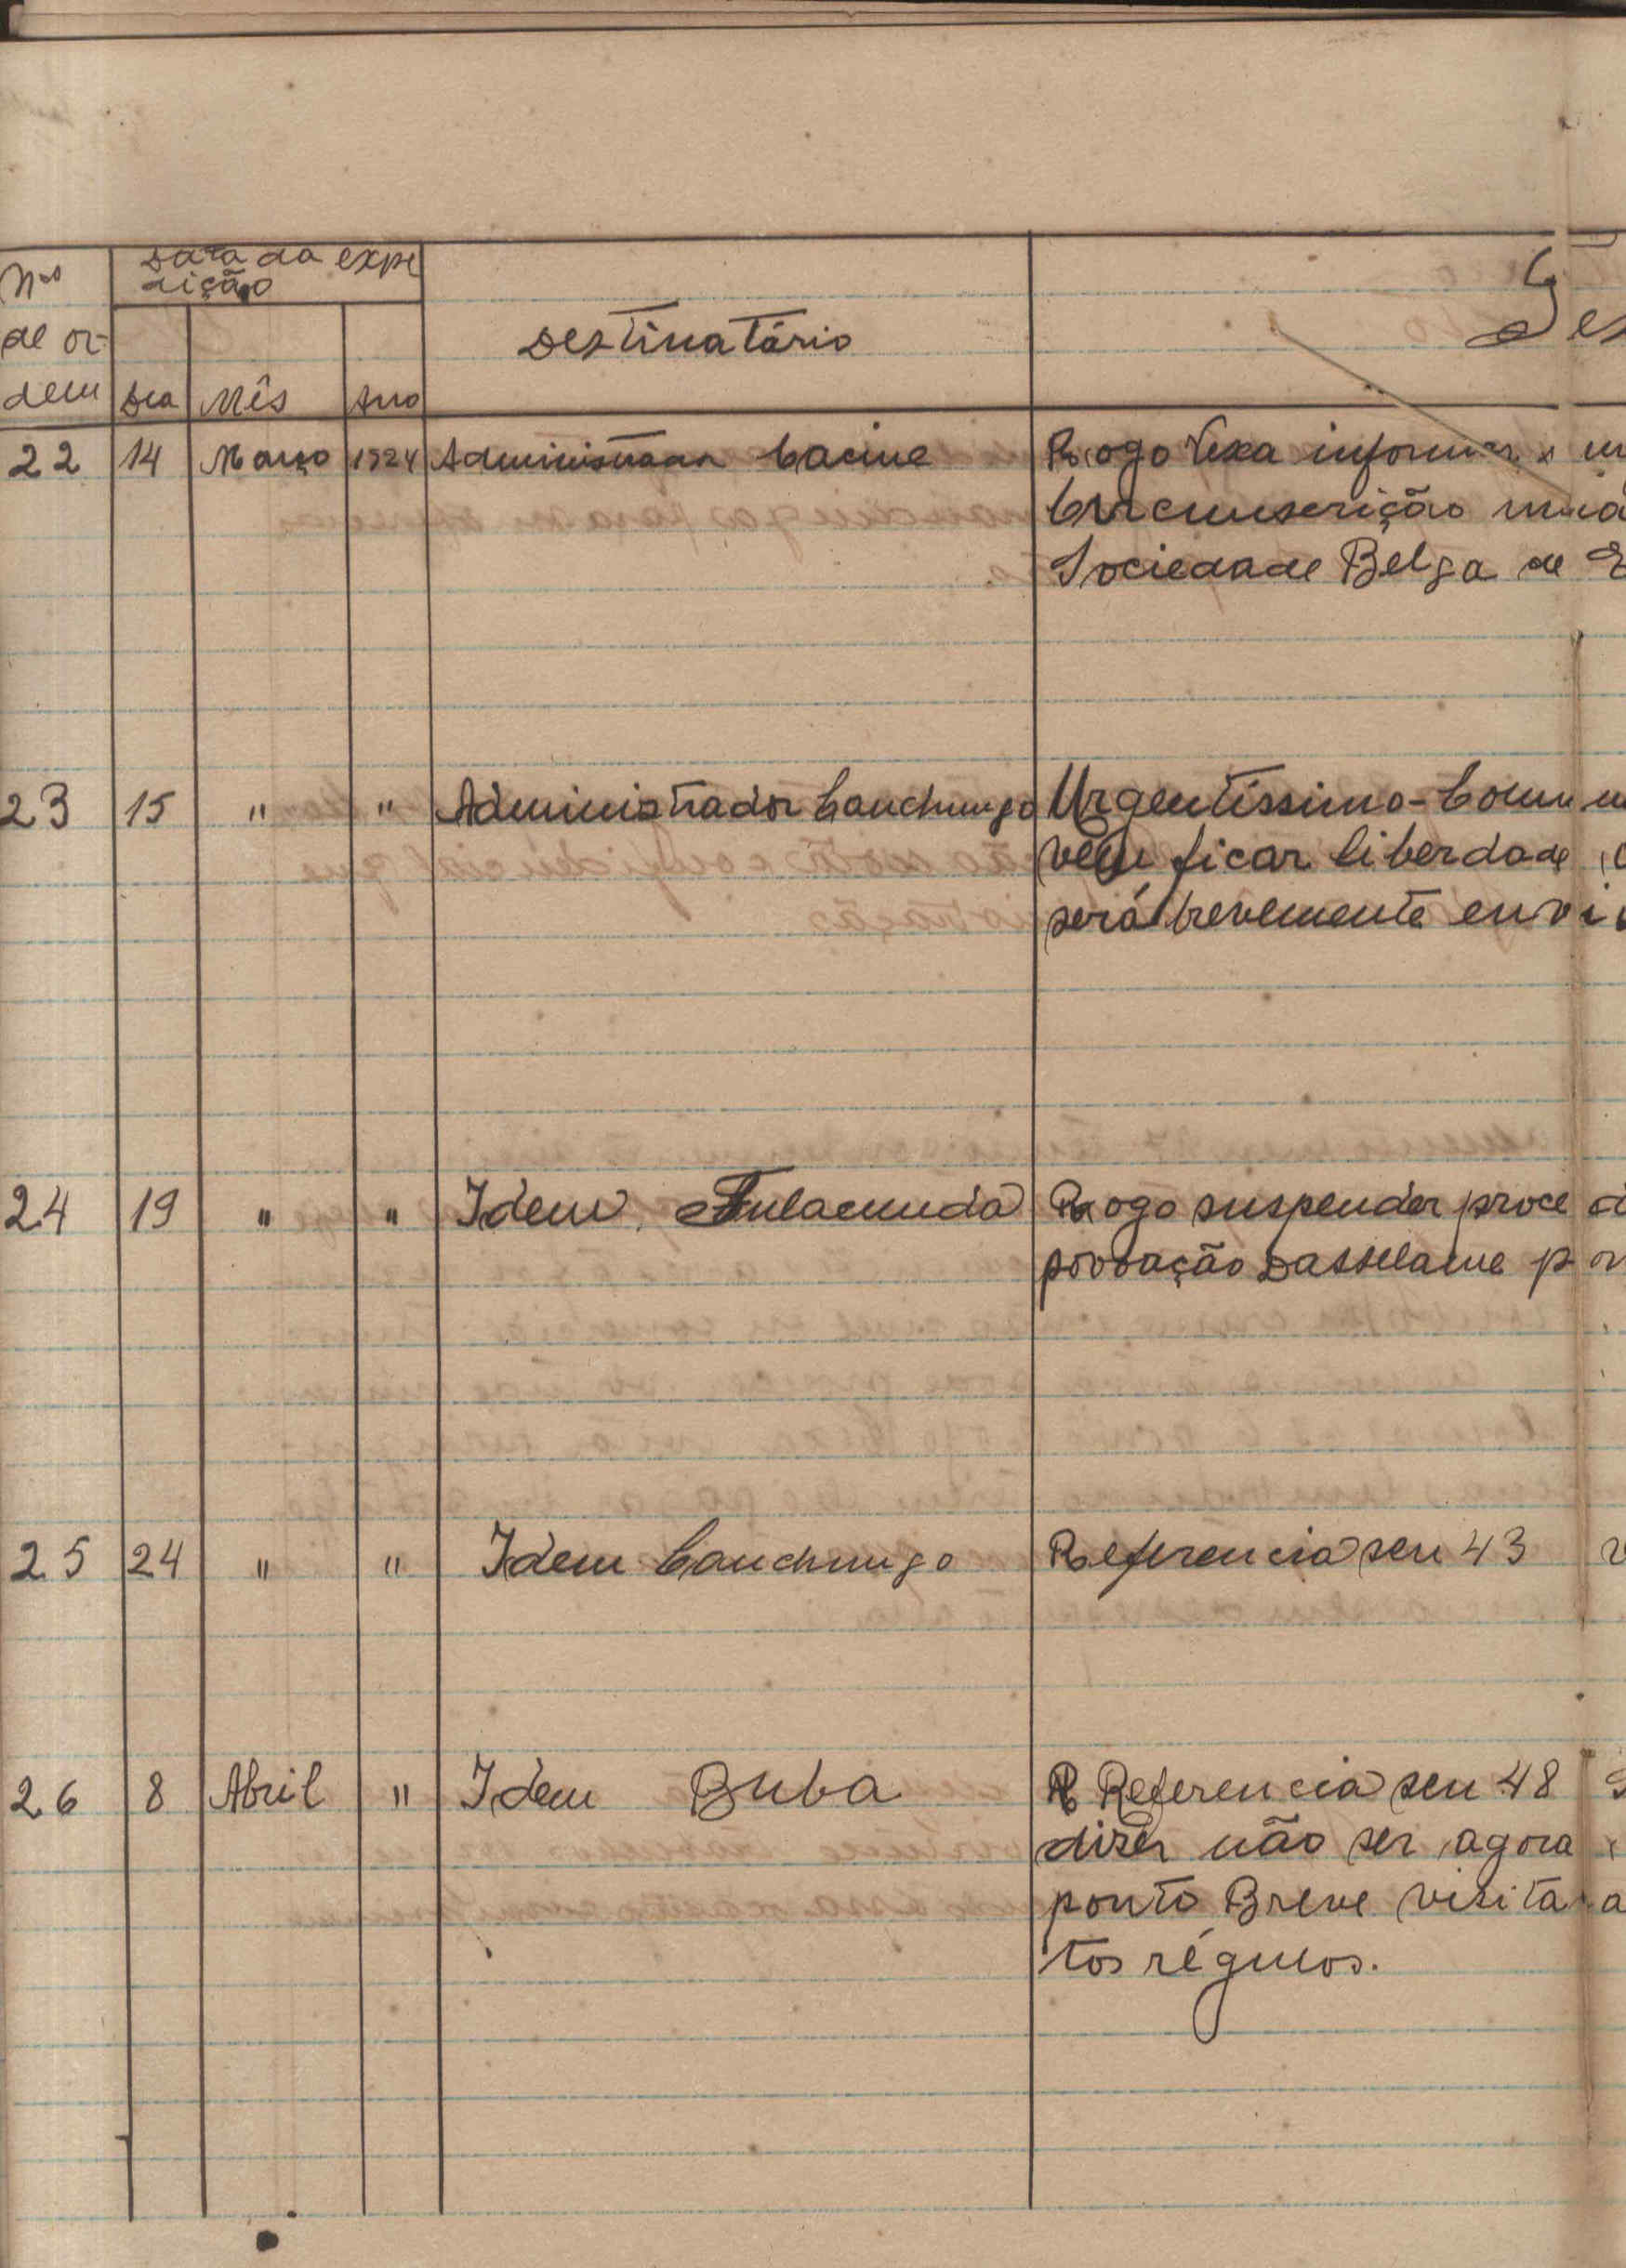 Nos
de or-
dem
Data da expe
dição
Dia Mês Ano
Destinatário
Des
22 14 Março 1924 Administrador Cacine Rogo Vexa informar
Circunscrição
Sociedade Belga de E
23 15 " " Administrador Canchungo Urgentíssimo - Comu
ficar liberdade
será brevemente envi
24 19 " " Idem Fulacunda Rogo suspender proce
povoação Dasselame por
25 24 " " Idem Canchungo Referencia seu 43
26 8 Abril " Idem Buba Referencia seu 48
dizer não ser agora
ponto Breve visita
tos régulos.